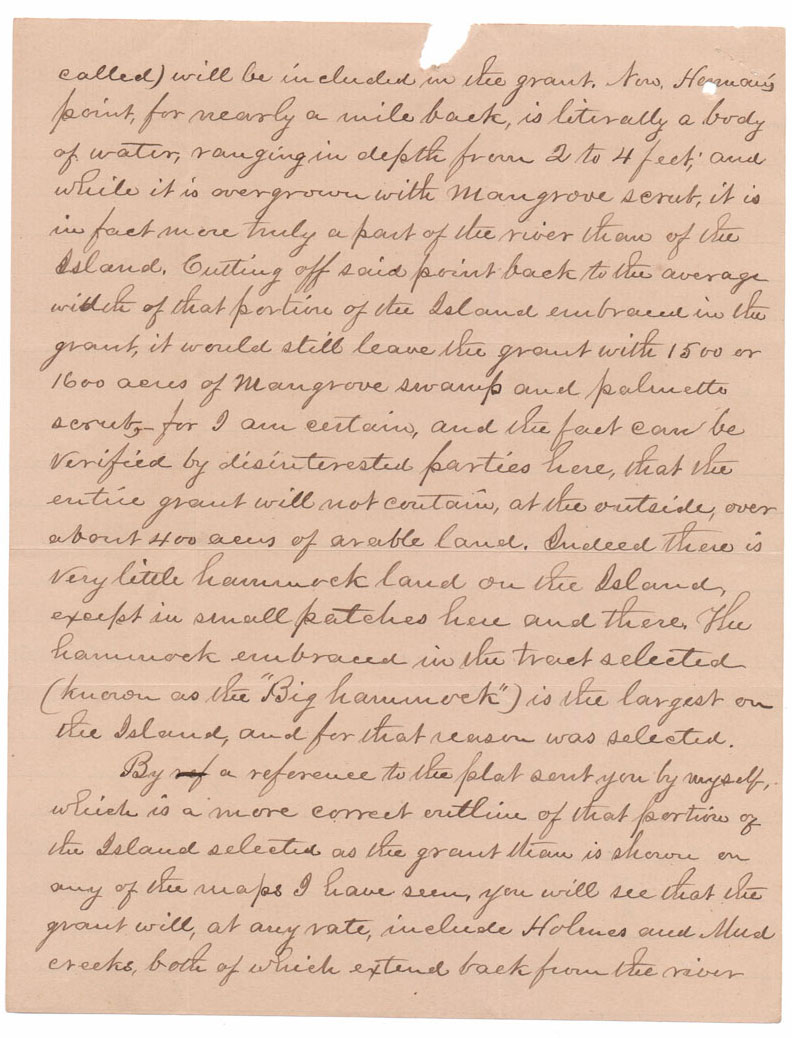 called) will be included in the grant. Now,
point, for nearly a mile back, is literally a body
of water, ranging in depth from 2 to 4 feet; and
while it is overgrown with Mangrove scrub, it is
in fact more truly a part of the river than of the
Island. Cutting off said point back to the average
width of that portion of the Island embraced in the
grant, it would still leave the grant with 1500 or
1600 acres of Mangrove swamp and palmetto
scrub,- for I am certain, and the fact can be
verified by disinterested parties here, that the
entire grant will not contain, at the outside, over
about 400 acres of arable land. Indeed there is
very little hammock land on the Island,
except in small patches here and there. The
hammock embraced in the tract selected
(known as the "Big hammock") is the largest on
the Island, and for that reason was selected.
By ref a reference to the plat sent you by myself,
which is a more correct outline of that portion of
the Island selected as the grant than is shown on
any of the maps I have seen, you will see that the
grant will, at any rate, include Holmes and Mud
creeks, both of which extend back from the river